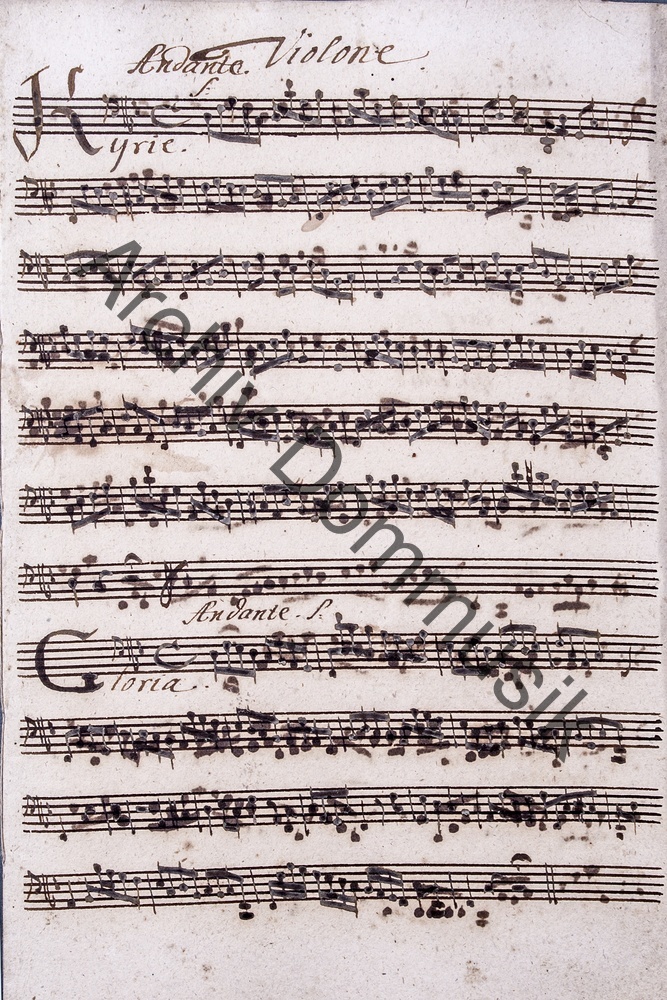 Andante. Violone
f.
Kyrie.
Andante. f.
Gloria.
Archiv Dommusik